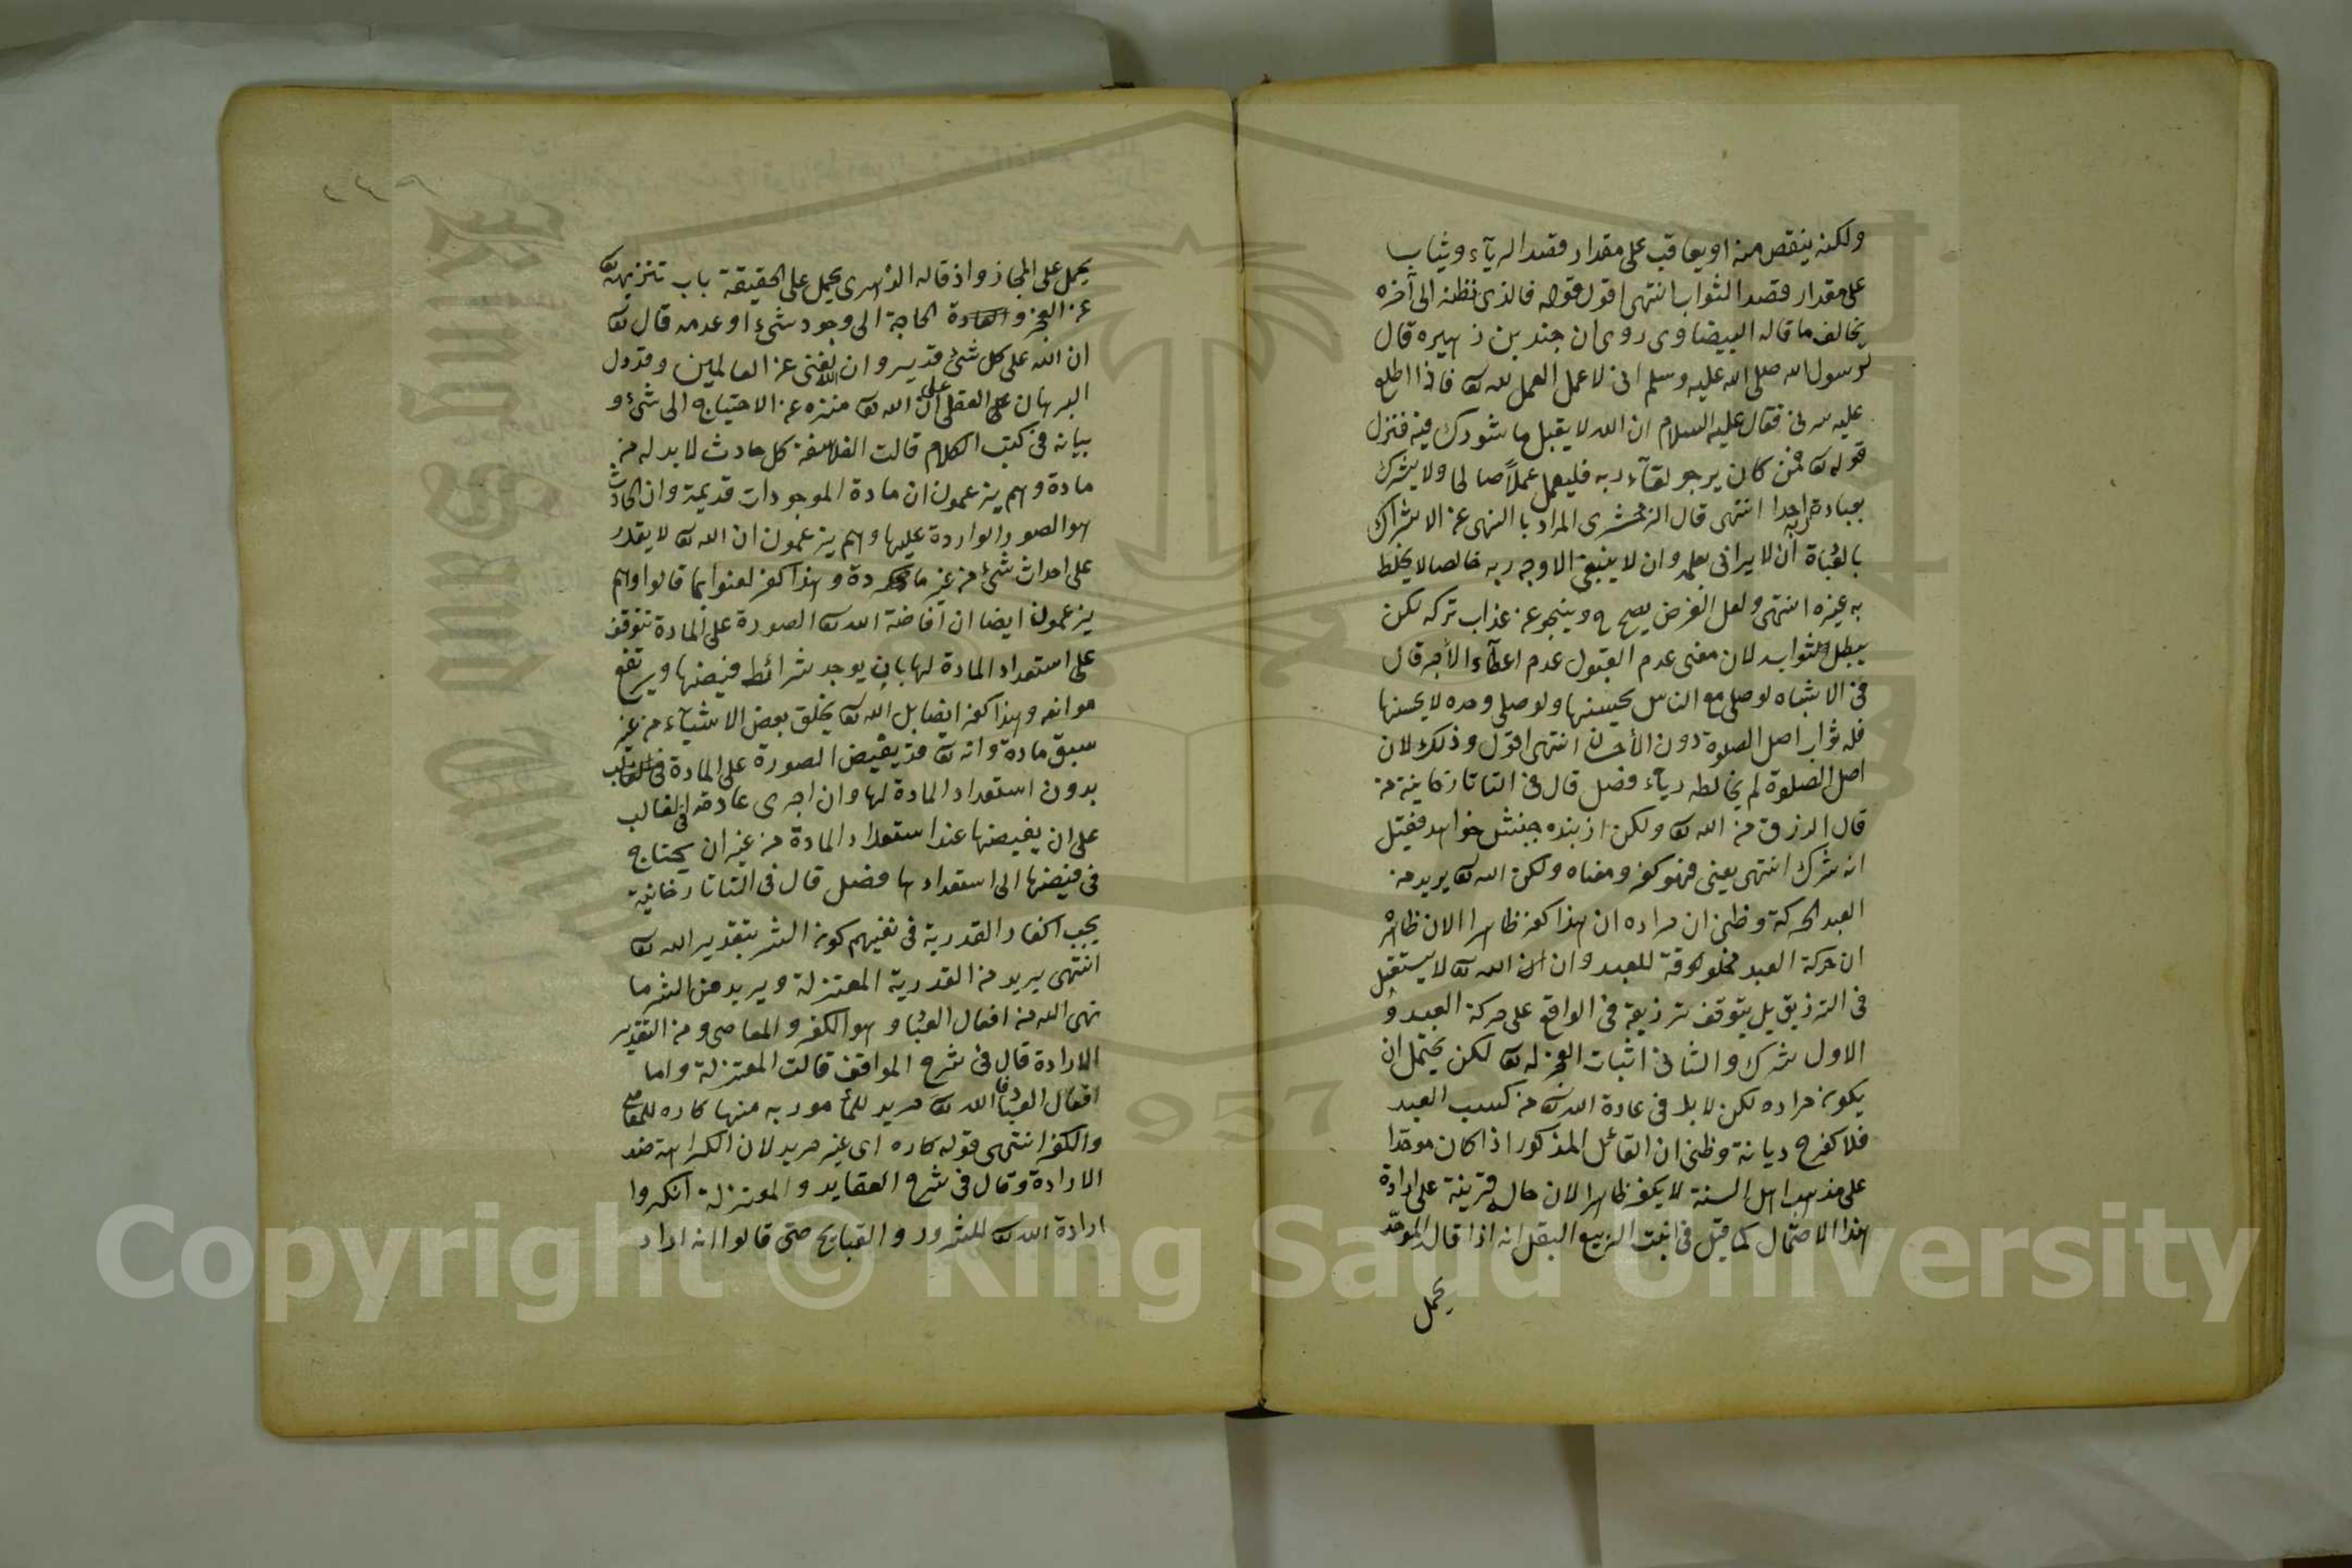 ولكنه ينقص منه او يعاقب على مقدار قصد الريآء ويثاب
على مقدار قصد الثواب انتهى اقول قوله فالذى نظنه الى آخره
يخالف ما قاله البيضاوى روى ان جندب بن زهيره قال
لرسول الله صلى الله عليه وسلم انى لاعمل العمل لله تع فاذا اطلع
عليه سرنى فقال عليه السلام ان الله لا يقبل ما شورك فيه فنزل
قوله تع فمن كان يرجو لقآء ربه فليعمل عملاً صالحا ولا يشرك
بعبادة ربه احدا انتهى قال الزمخشرى المراد بالنهى عن الاشراك
بالعبادة ان لا يرائى بعلمه وان لا يبتغى الا وجه ربه خالصا لا يخلط
به غيره انتهى ولعل الغرض يصح وينجو عن عذاب تركه لكن
يبطل الثواب لان معنى عدم القبول عدم اعطآء الأجر قال
فى الاشباه لو صلى مع الناس يحسنها ولو صلى وحده لا يحسنها
فله ثواب اصل الصلوة دون الأحسان انتهى اقول وذلك لان
اصل الصلوة لم يخالطه ريآء فصل قال فى التاتارخانية من
قال الرزق من الله تع ولكن از بنده جنبش خواهد فقيل
انه شرك انتهى يعنى فهو كفر ومعناه ولكن الله تع يريد من
العبد الحركة وظنى ان مراده ان هذا كفر ظاهرا لان ظاهره
ان حركة العبد مخلوقة للعبد وان الله تع لا يستقل
فى الترزيق بل يتوقف ترزيقه فى الواقع على حركة العبد و
الاول شرك والثانى اثبات العجز له تع لكن يحتمل ان
يكون مراده لكن لا بد فى عادة الله تع من كسب العبد
فلا كفر ح ديانة وظنى ان القائل المذكور اذا كان موحدا
على مذهب اهل السنة لا يكفر ظاهرا لان حاله قرينة على ارادة
هذا الاحتمال كما قيل فى انبت الربيع البقل انه اذا قال الموحّد
يحمل
٢٤٩
يحمل على المجاز واذ قاله الدهرى يحمل على الحقيقة باب تنزيهه تع
عن العجز و الحاجة الى وجود شىء او عدمه قال تع
ان الله على كل شىء قدير وان الله لغنى عن العالمين وقد دل
البرهان العقلى على ان الله تع منزه عن الاحتياج الى شىء و
بيانه فى كتب الكلام قالت الفلاسفة كل حادث لا بد له من
مادة وهم يزعمون ان مادة الموجودات قديمة وان الحادث
هو الصور الواردة عليها وهم يزعمون ان الله تع لا يقدر
على احداث شىء من غير مادة وهذا كفر لعنوا بما قالوا وهم
يزعمون ايضا ان افاضة الله تع الصورة على المادة تتوقف
على استعداد المادة لها بان يوجد شرائط فيضها ويرتفع
موانعه وهذا كفر ايضا بل الله تع يخلق بعض الاشيآء من غير
سبق مادة وانه تع قد يفيض الصورة على المادة
بدون استعداد المادة لها وان اجرى عادته فى الغالب
على ان يفيضها عند استعداد المادة من غير ان يحتاج
فى فيضها الى استعدادها فصل قال فى التاتارخانية
يجب اكفار القدرية فى نفيهم كون الشر بتقدير الله تع
انتهى يريد من القدرية المعتزلة ويريد من الشر ما
نهى الله من افعال العباد وهو الكفر والمعاصى ومن التقدير
الارادة قال فى شرح المواقف قالت المعتزلة واما
افعال العباد فالله تع مريد للمأمور به منها كاره للمعاصى
والكفر انتهى قوله كاره اى غير مريد لان الكراهة ضد
الارادة وقال فى شرح العقايد والمعتزلة انكروا
ارادة الله تع للشرور والقبايح حتى قالوا انه اراد
Copyright © King Saud University
King Saud University
1957